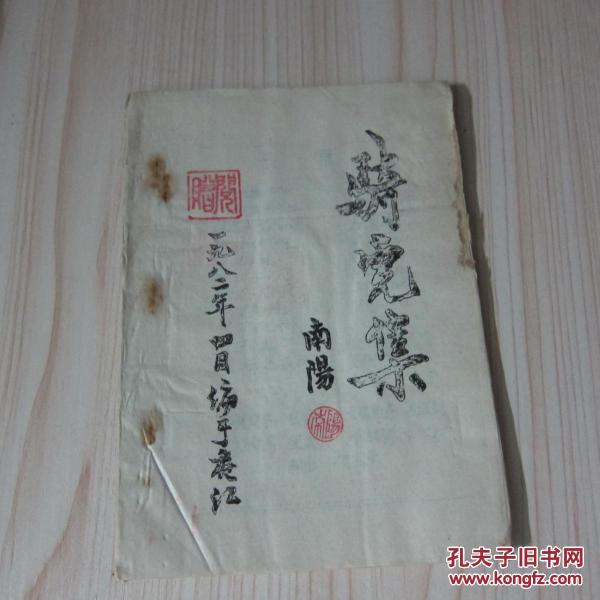 骑虎集
南陽
南陽
贈閱
一九八二年四月编于江
孔夫子旧书网
www.kongfz.com